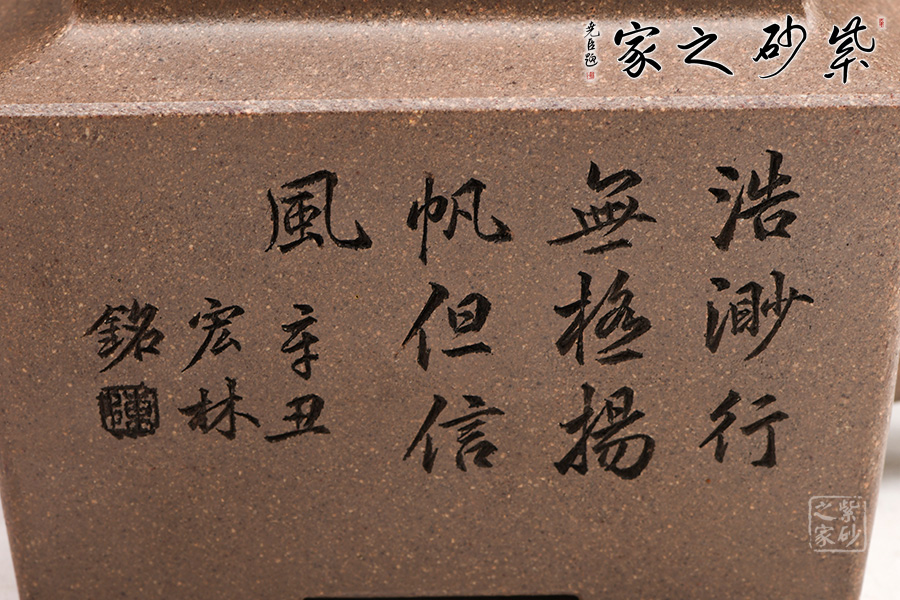 紫砂之家
堯臣題
浩渺行
無極揚
帆但信
風 辛丑
宏林
銘
陳
紫砂
之家